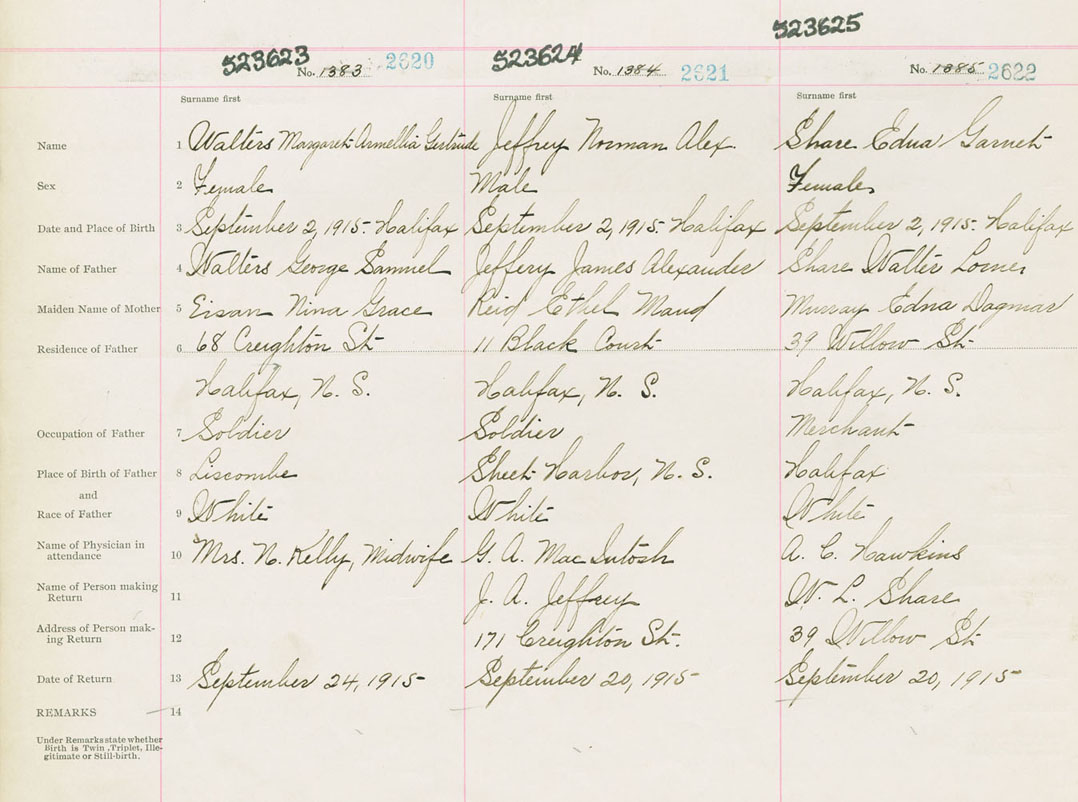 523623 523624 523625
No. 1383 2620 No. 1384 2621 No. 1385 2622
Surname first Surname first Surname first
Name 1 Walters Margaret Armellia Gertrude Jeffrey Norman Alex. Share Edna Garnet
Sex 2 Female Male Female
Date and Place of Birth 3 September 2, 1915- Halifax September 2, 1915- Halifax September 2, 1915- Halifax
Name of Father 4 Walters George Samuel Jeffery James Alexander Share Walter Lorne
Maiden Name of Mother 5 Eisan Nina Grace Reid Ethel Maud Murray Edna Dagmar
Residence of Father 6 68 Creighton St. 11 Black Court 39 Willow St.
Halifax, N. S. Halifax, N. S. Halifax, N. S.
Occupation of Father 7 Soldier Soldier Merchant
Place of Birth of Father 8 Liscombe Sheet Harbor, N. S. Halifax
and
Race of Father 9 White White White
Name of Physician in
attendance 10 Mrs. N. Kelly, Midwife G. A. MacIntosh A. C. Hawkins
Name of Person making
Return 11 J. A. Jeffrey W. L. Share
Address of Person mak-
ing Return 12 171 Creighton St. 39 Willow St.
Date of Return 13 September 24, 1915- September 20, 1915- September 20, 1915-
REMARKS 14
Under Remarks state whether
Birth is Twin, Triplet, Ille-
gitimate or Still-birth.